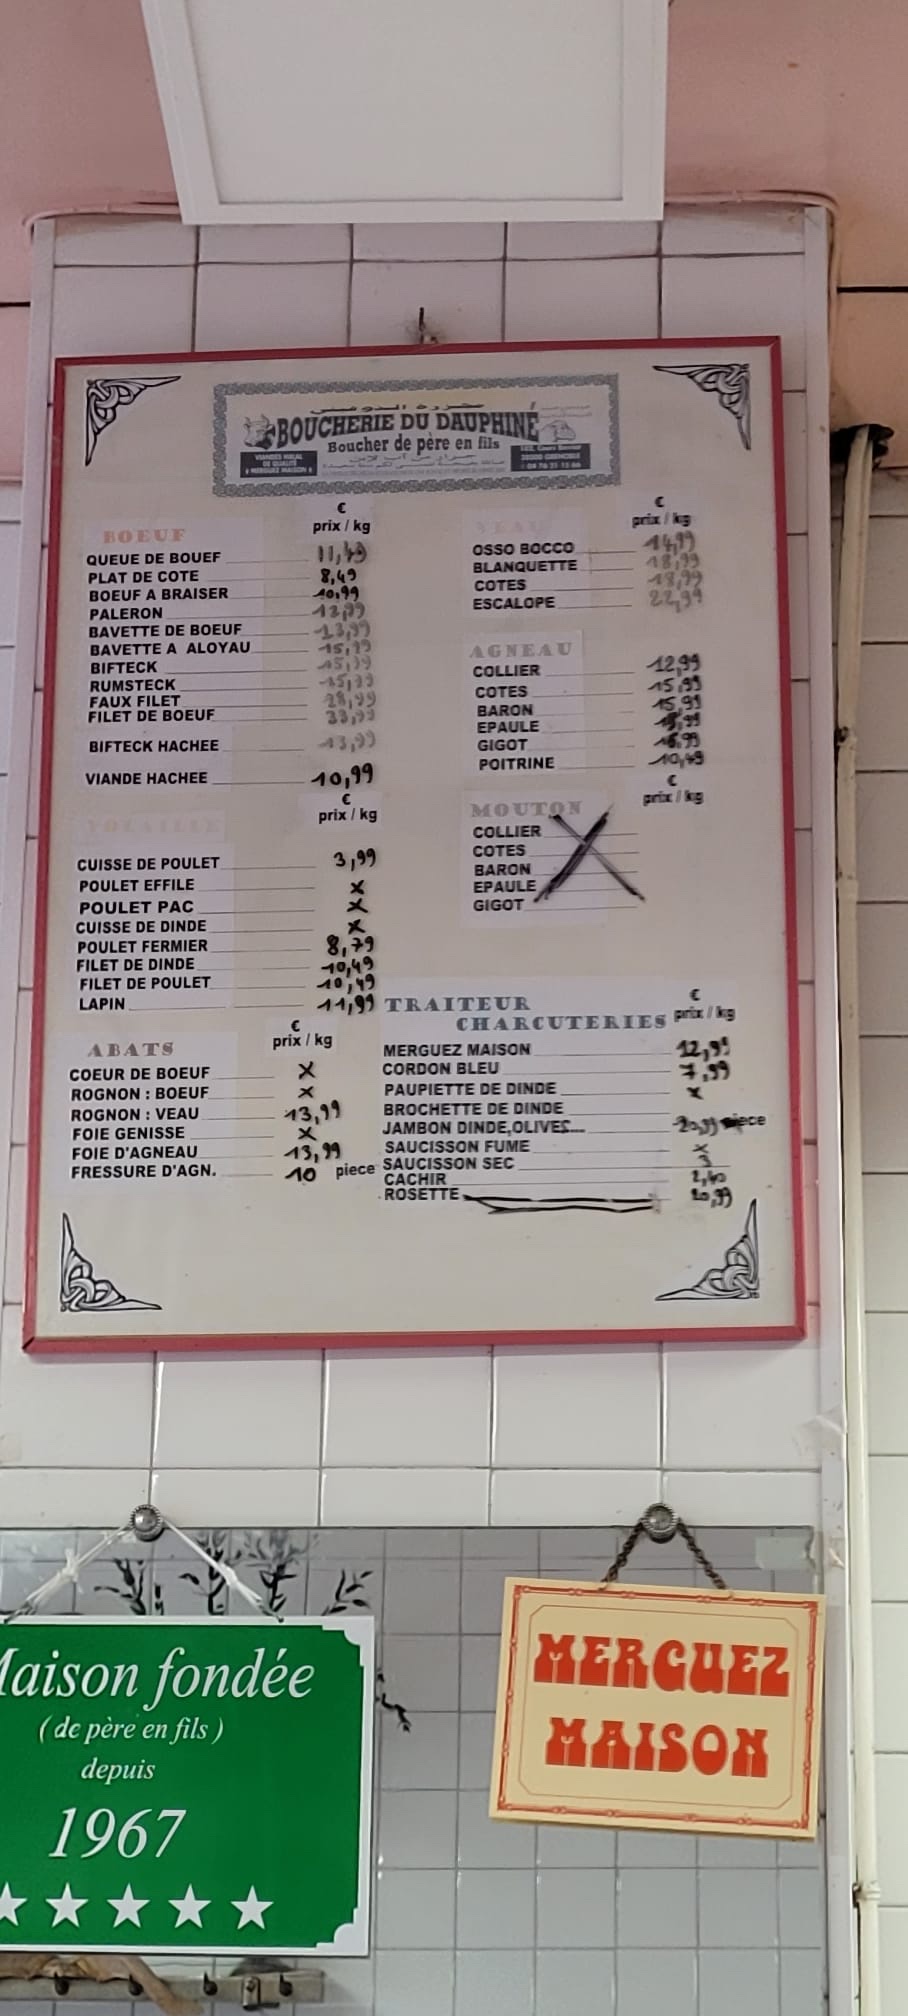 BOUCHERIE DU DAUPHINÉ
Boucher de père en fils
VIANDES HALAL
DE QUALITÉ
MERGUEZ MAISON
38000 GRENOBLE
€
prix / kg
BOEUF
QUEUE DE BOUEF 11,49
PLAT DE COTE 8,49
BOEUF A BRAISER 10,99
PALERON 12,99
BAVETTE DE BOEUF 13,99
BAVETTE A ALOYAU 15,99
BIFTECK 15,99
RUMSTECK 15,99
FAUX FILET 28,99
FILET DE BOEUF 33,99
BIFTECK HACHEE 13,99
VIANDE HACHEE 10,99
€
prix / kg
VOLAILLE
CUISSE DE POULET 3,99
POULET EFFILE X
POULET PAC X
CUISSE DE DINDE X
POULET FERMIER 8,79
FILET DE DINDE 10,49
FILET DE POULET 10,49
LAPIN 11,99
€
prix / kg
ABATS
COEUR DE BOEUF X
ROGNON : BOEUF X
ROGNON : VEAU 13,99
FOIE GENISSE X
FOIE D'AGNEAU 13,99
FRESSURE D'AGN. 10 piece
€
prix / kg
VEAU
OSSO BOCCO 14,99
BLANQUETTE 18,99
COTES 18,99
ESCALOPE 22,99
AGNEAU
COLLIER 12,99
COTES 15,99
BARON 15,99
EPAULE
GIGOT 16,99
POITRINE 10,49
€
prix / kg
MOUTON
COLLIER
COTES
BARON
EPAULE
GIGOT
€
prix / kg
TRAITEUR
CHARCUTERIES
MERGUEZ MAISON 12,99
CORDON BLEU 7,99
PAUPIETTE DE DINDE X
BROCHETTE DE DINDE
JAMBON DINDE,OLIVES.... 20,99 piece
SAUCISSON FUME X
SAUCISSON SEC 3
CACHIR 2,40
ROSETTE 20,99
Maison fondée
( de père en fils )
depuis
1967
MERGUEZ
MAISON